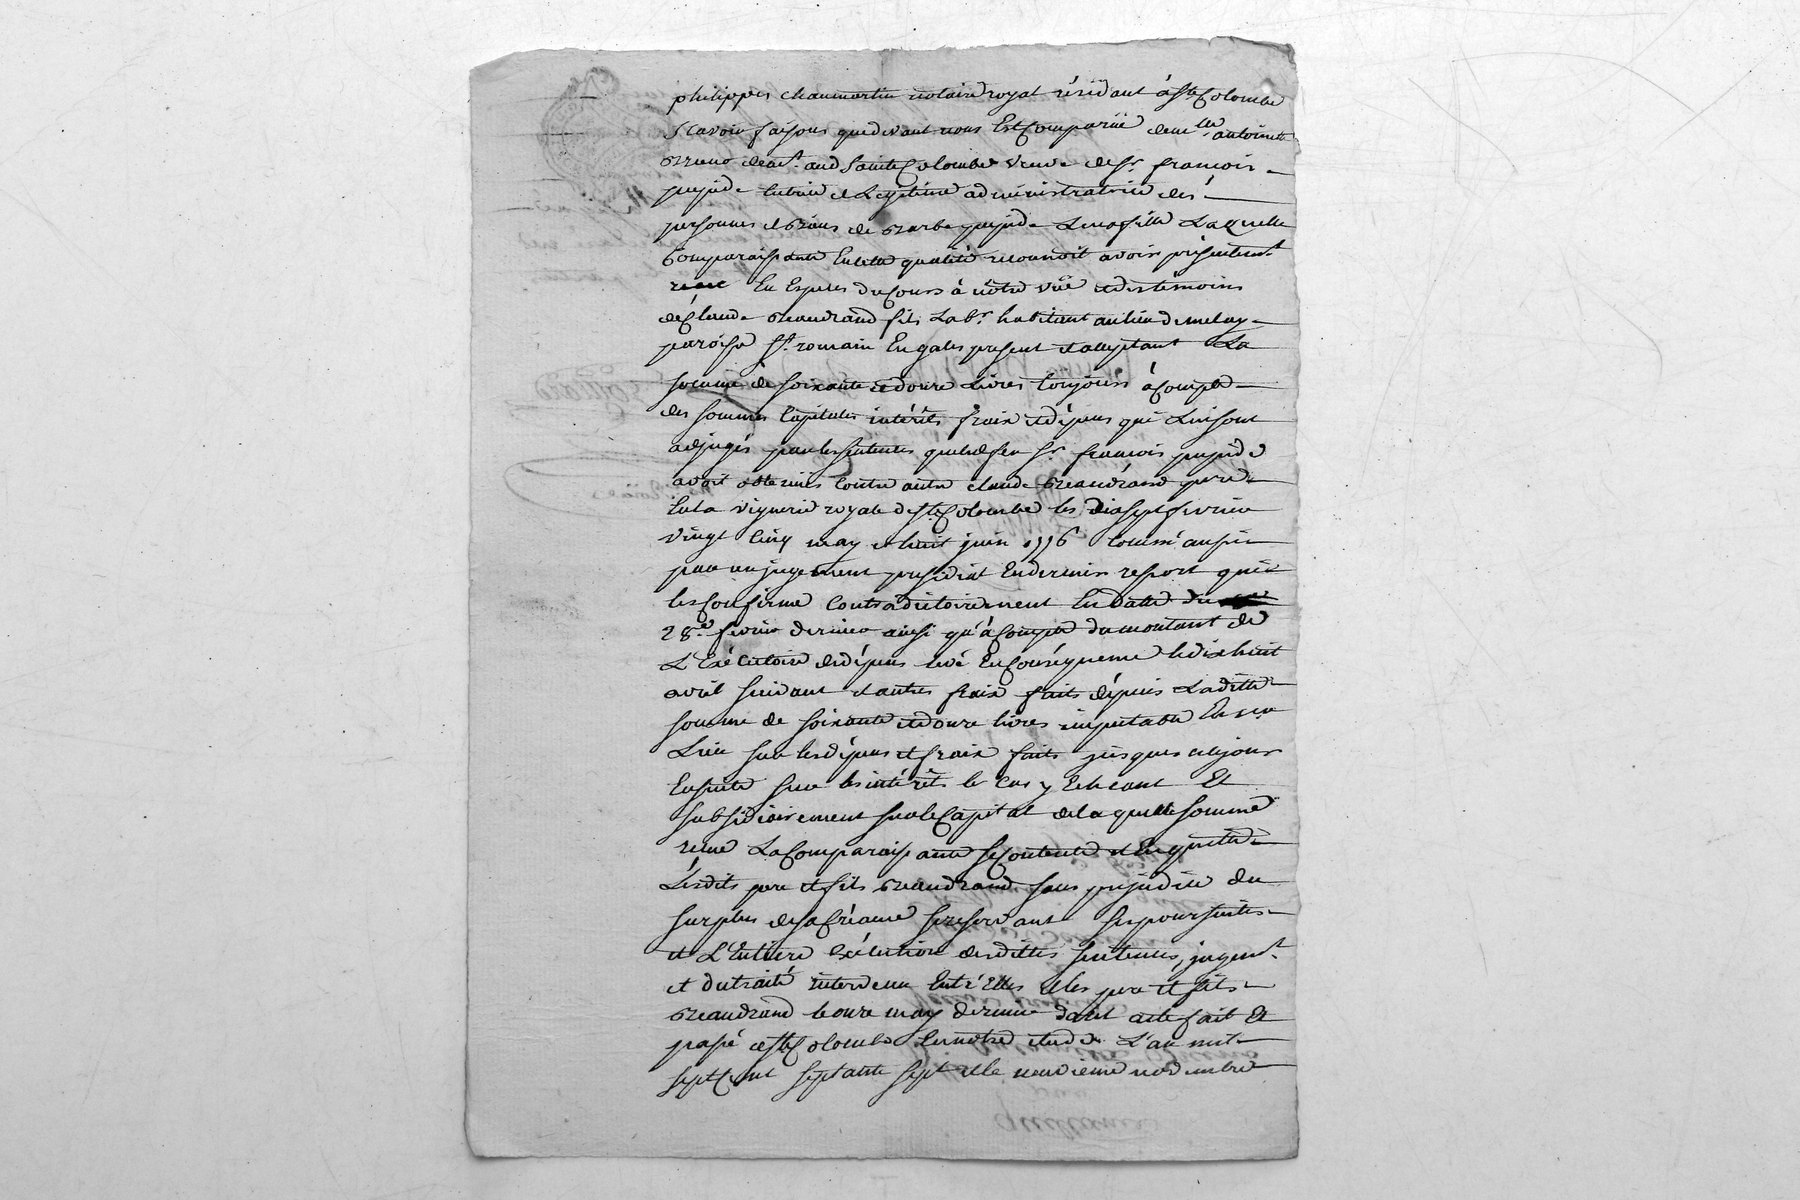 philippes chaumartin notaire royal résidant à Ste Colombe
Scavoir faisons que devant nous Est Comparüe demlle antoinette
veuve de sr françois
pupide tutrice et Legitime administratrice des
personnes et biens de barbe pupide Leur fille Laquelle
Comparaissante En cette qualité reconnoit avoir présentemt
reçu En Especes du Cours à nôtre vüe et des témoins
de Claude beaudrand fils Labr habitant au lieu de melay
paroisse st romain En gales present et acceptant La
somme de soixante et douze Livres toujours à Compte
des sommes Capitales intérêts frais et dépens qui Lui sont
adjugés par les sentences que led feu sr françois pupide
avoit obtenües Contre autre claude beaudrand pere
En la viguerie royale de Ste Colombe les dix sept fevrier
vingt Cinq may et huit juin 1776 Comme aussi
par un jugement présidial En dernier ressort qui
les Confirme Contradictoirement En datte du
28e fevrier dernier ainsi qu'à Compte du montant de
L'Exécutoire des dépens levé En Conséquence le dix huit
avril suivant et autres frais faits dépuis Laditte
somme de soixante et douze livres imputable En per
Lieu sur les dépens et frais faits jusques à ce jour
Ensuite sur les intérêts le Cas y Echeant Et
subsidiairement sur le Capital de laquelle somme
reçue La Comparaissante se Contente et En quitte
Lesdits pere et fils beaudrand sans préjudice du
surplus de sa Créance se reservant ses poursuites
et L'Entiere Exécution desdittes sentences, jugemt
et du traité intervenu Entr'Elles et les pere et fils
beaudrand le onze may dernier dont acte fait Et
passé à Ste Colombe En notre etude L'an mil
sept Cent septante sept et le neuvieme novembre